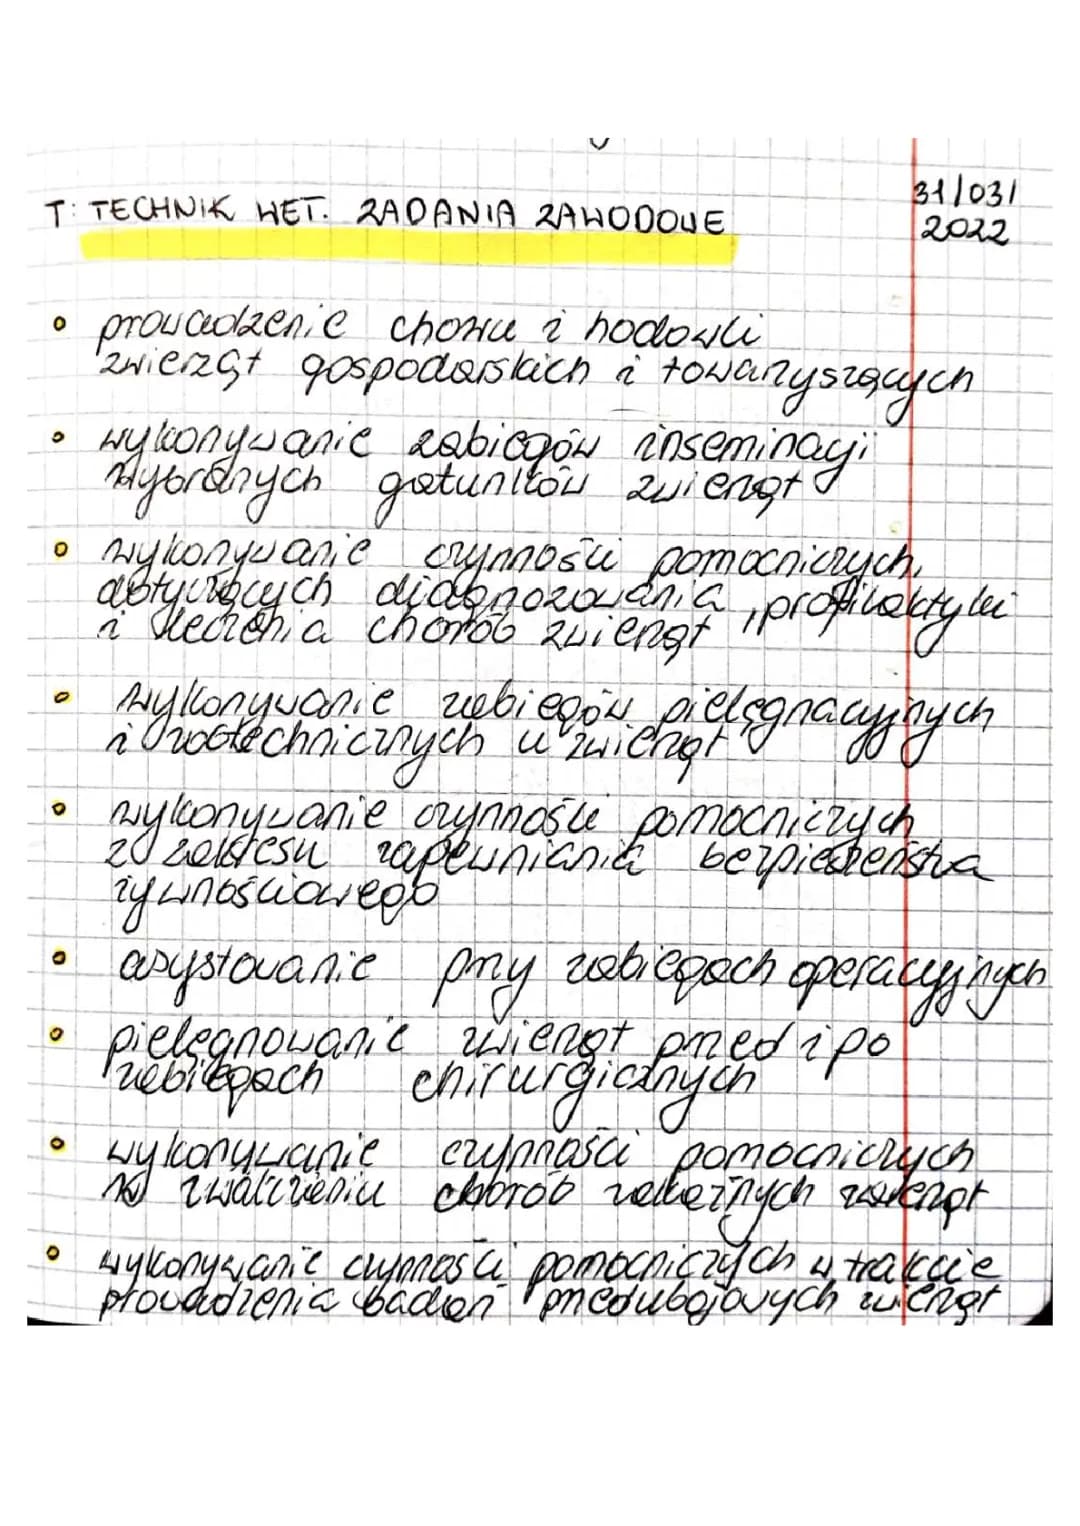 T: TECHNIK WET. ZADANIA ZAWODOWE
31/03/
2022
prowadzenie chowu i hodowli
zwierząt gospodarskich i towarzyszących
wykonywanie zabiegów inseminacji
wybranych gatunków zwierząt
wykonywanie czynności pomocniczych,
dotyczących diagnozowania, profilaktyki
i leczenia chorób zwierząt
wykonywanie zabiegów pielęgnacyjnych
i zootechnicznych u zwierząt
wykonywanie czynności pomocniczych
z zakresu zapewniania bezpieczeństwa
żywnościowego
asystowanie przy zabiegach operacyjnych
pielęgnowanie zwierząt przed i po
zabiegach chirurgicznych
wykonywanie czynności pomocniczych
w zwalczeniu chorób zakaźnych zwierząt
wykonywanie czynności pomocniczych w trakcie
prowadzenia badań przedubojowych zwierząt